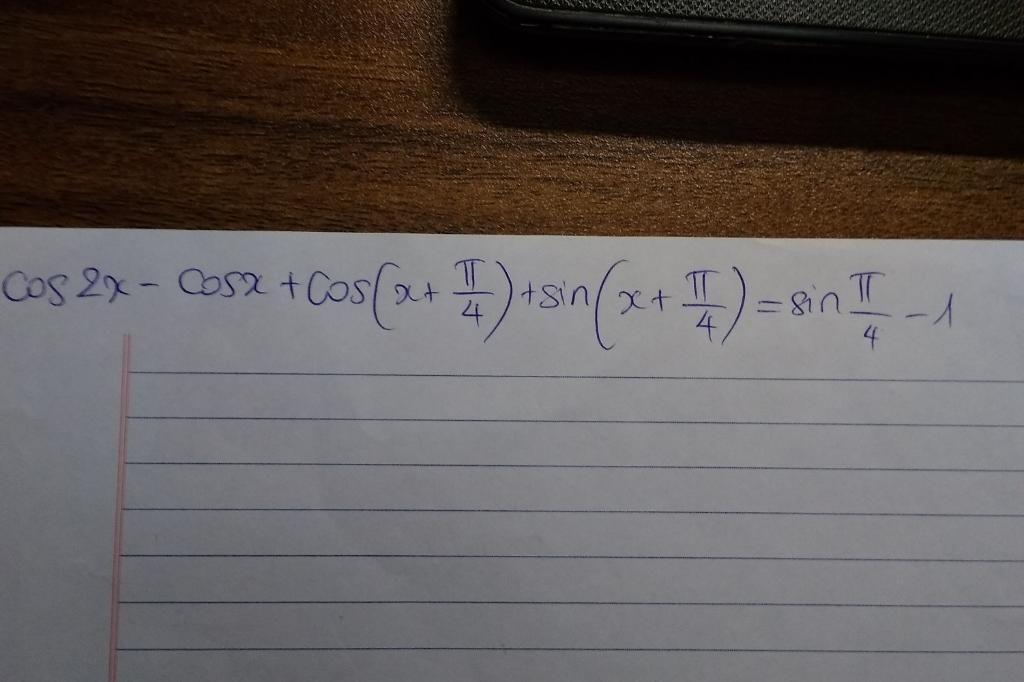 cos2x - cosx + cos(x + π/4) + sin(x + π/4) = sin π/4 - 1